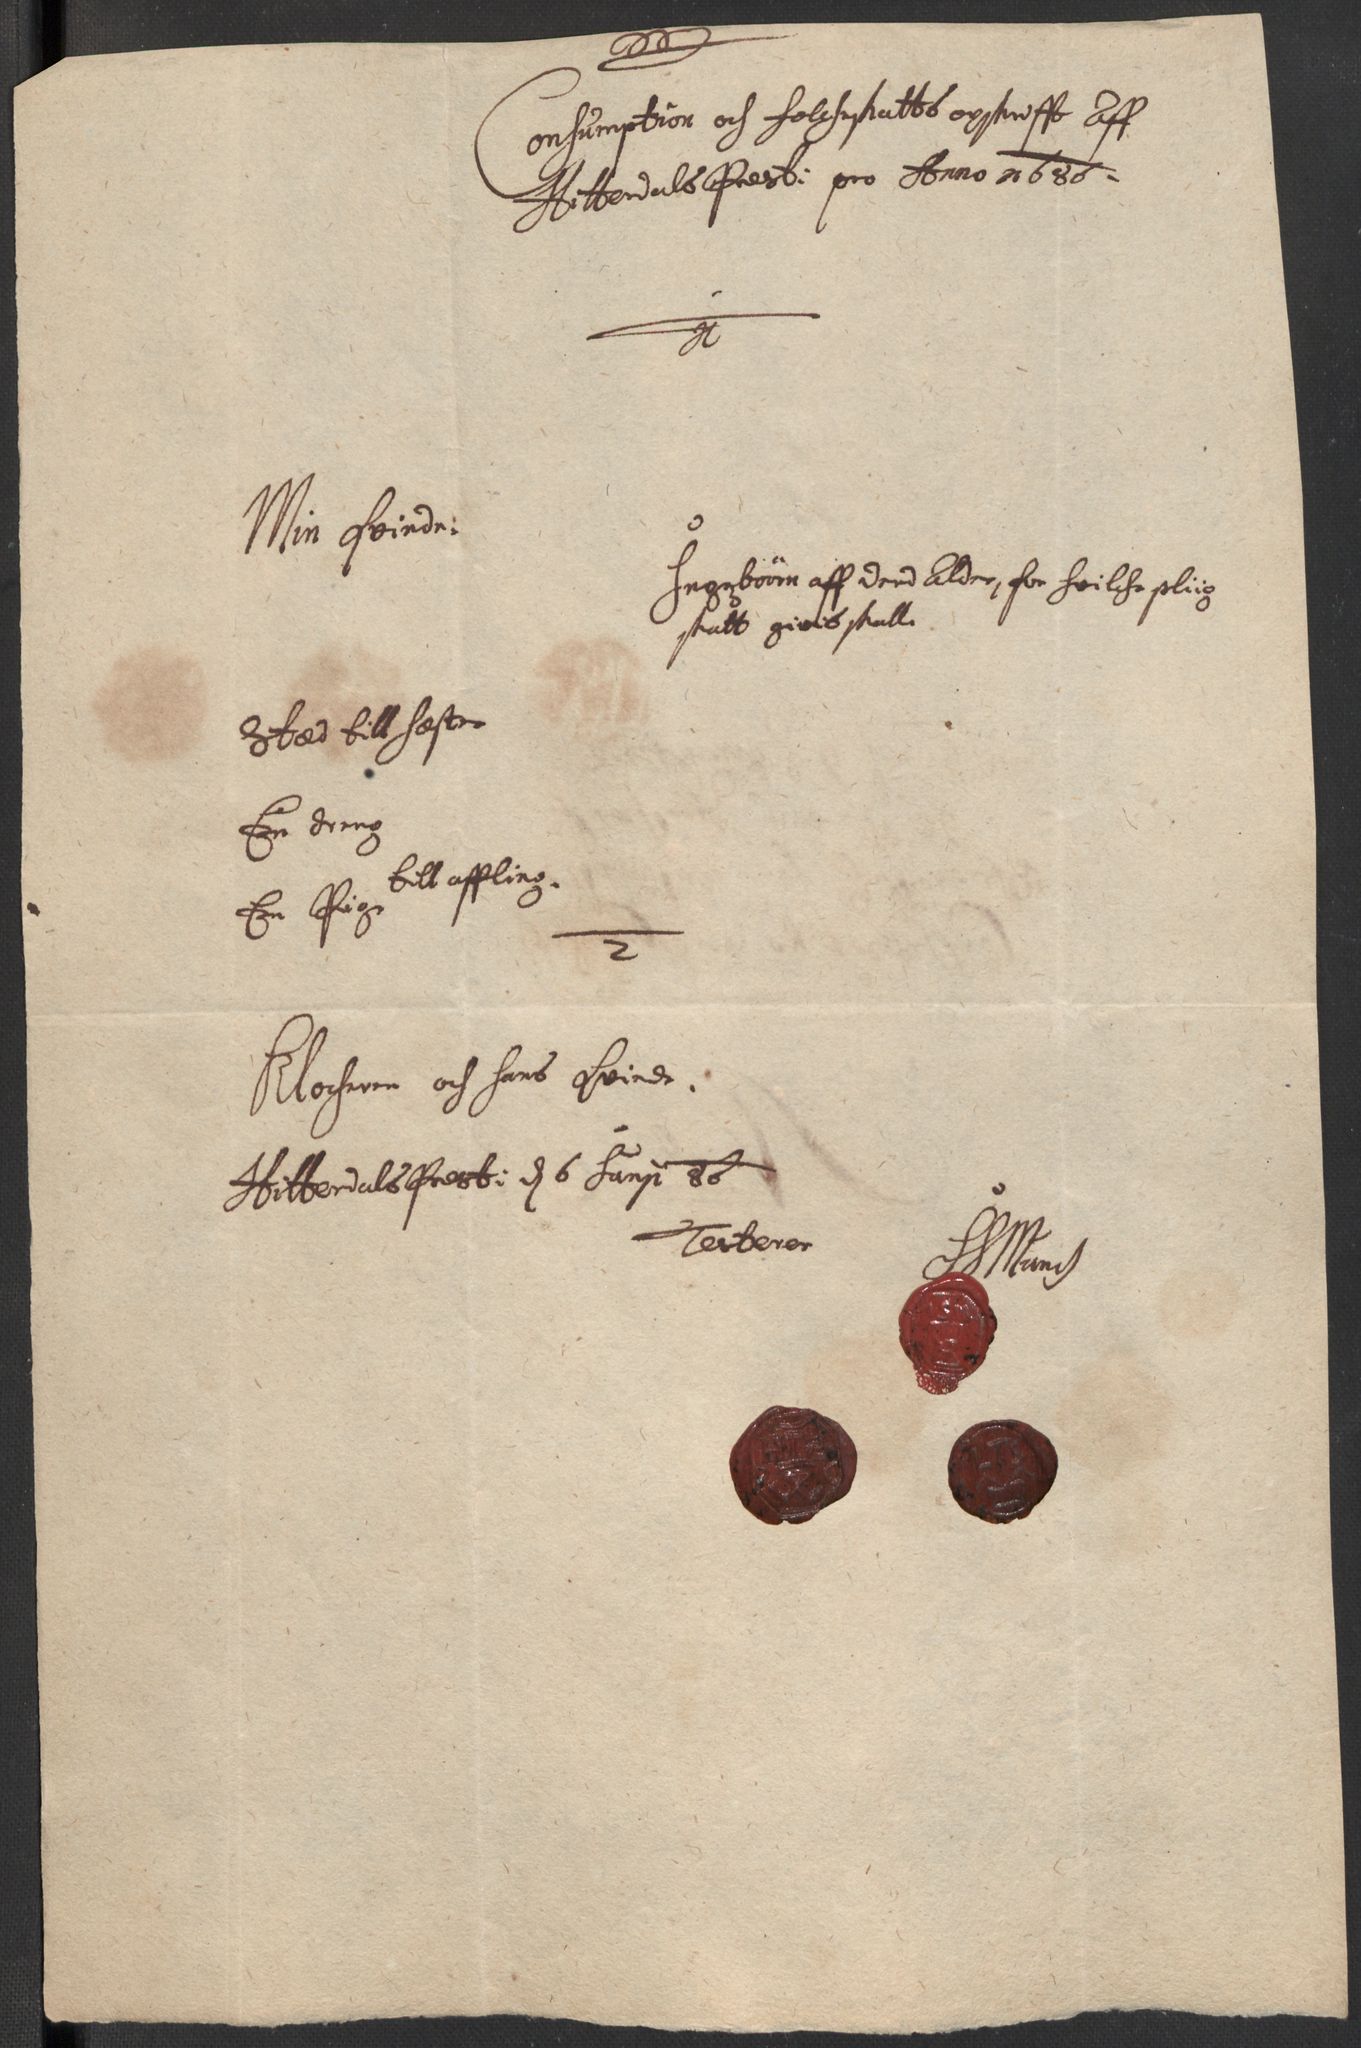 Consumption och folcheskatts opskrifft Aff
Hitterdals Præsti pro Anno 1686.
Min Qvinde:
Ingen börn aff dend Alder, for hvilche pliig
skatt givis skall.
Stæd till hæste
En dreng
En Pige till affling.
2
Klocheren och hans Qvinde.
Hitterdals Præsti d 6 Junji 86
Testerer
Munch